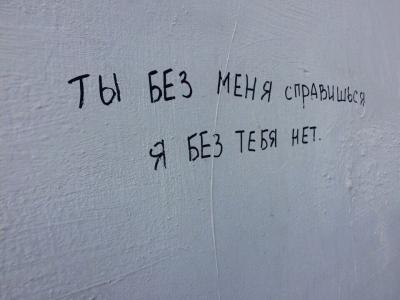 ТЫ БЕЗ МЕНЯ СПРАВИШЬСЯ
Я БЕЗ ТЕБЯ НЕТ.